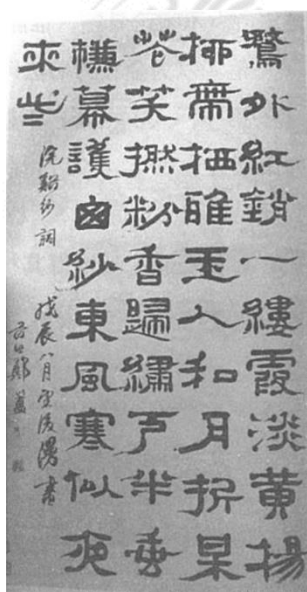 鶩外紅銷一縷霞淡黃楊
桺帶栖雅玉人和月折某
花笑撚粉香歸繡戶半垂
幕護窗紗東風寒似夜
來些
浣谿紗詞 戊辰八月望後漫書
鄭簠